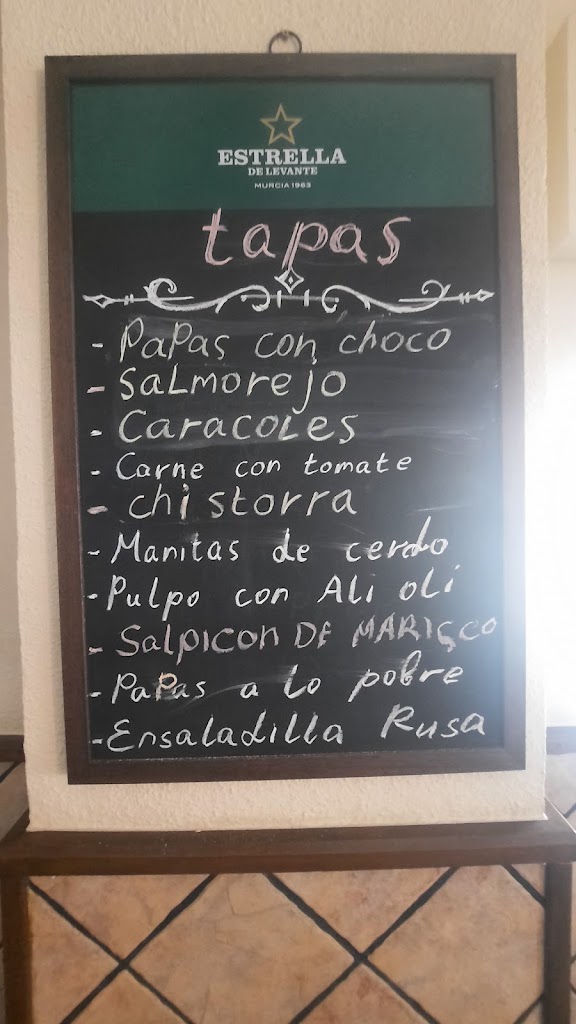 ESTRELLA
DE LEVANTE
MURCIA 1963
tapas
- PaPas con choco
- Salmorejo
- Caracoles
- Carne con tomate
- chistorra
- Manitas de cerdo
- Pulpo con Ali oli
- Salpicon DE MARISCO
- PaPas a lo pobre
- Ensaladilla Rusa